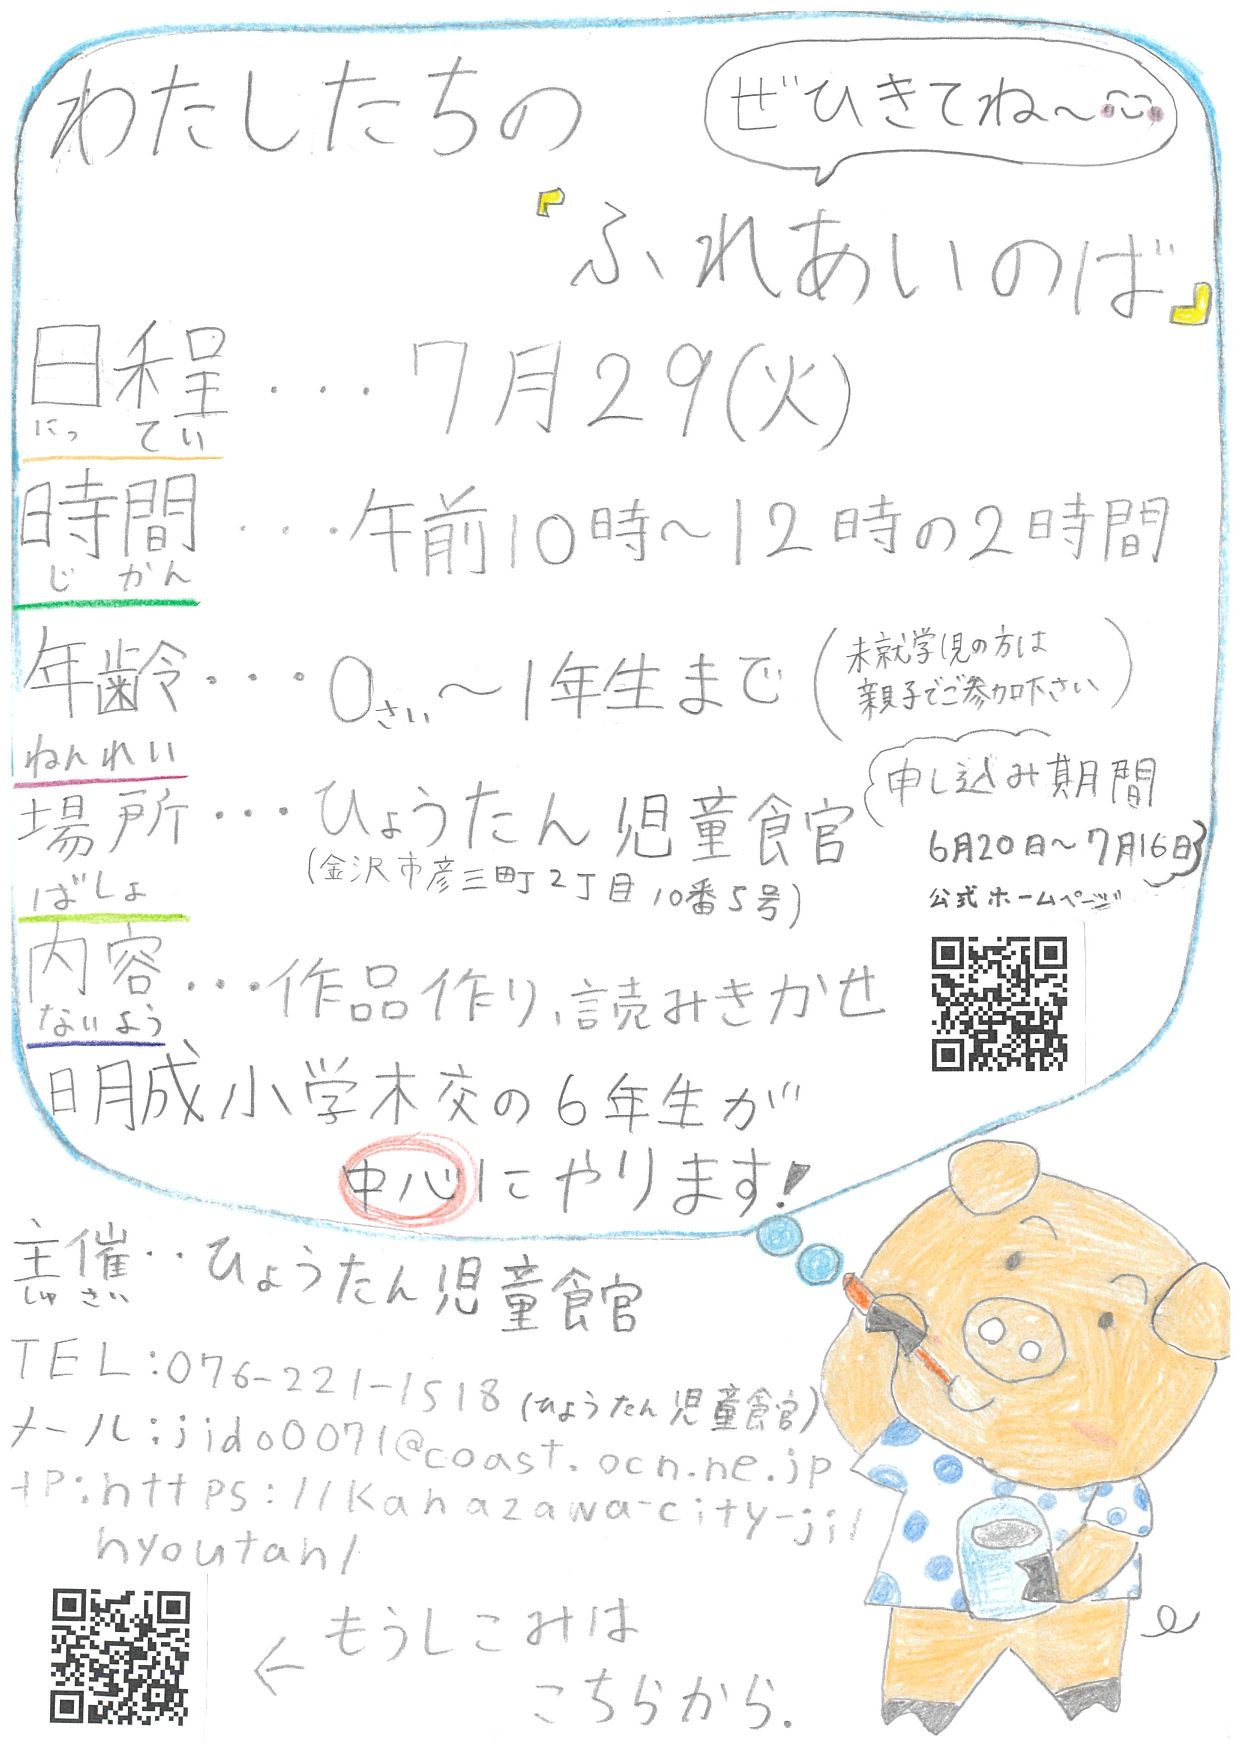 わたしたちの
ぜひきてね～
『ふれあいのば』
日程・・・7月29(火)
にっ てい
時間・・・午前10時～12時の2時間
じ かん
年齢・・・0さい～1年生まで(未就学児の方は
親子でご参加下さい)
ねんれい
場所・・・ひょうたん児童館
(金沢市彦三町2丁目10番5号)
ばしょ
申し込み期間
6月20日～7月16日
公式ホームページ
内容・・・作品作り、読みきかせ
ないよう
明成小学校の6年生が
中心にやります!
主催・・ひょうたん児童館
しゅ さい
TEL:076-221-1518(ひょうたん児童館)
メール:jido0071@coast.ocn.ne.jp
HP:https://kanazawa-city-ji/
hyoutan/
←もうしこみは
こちらから.